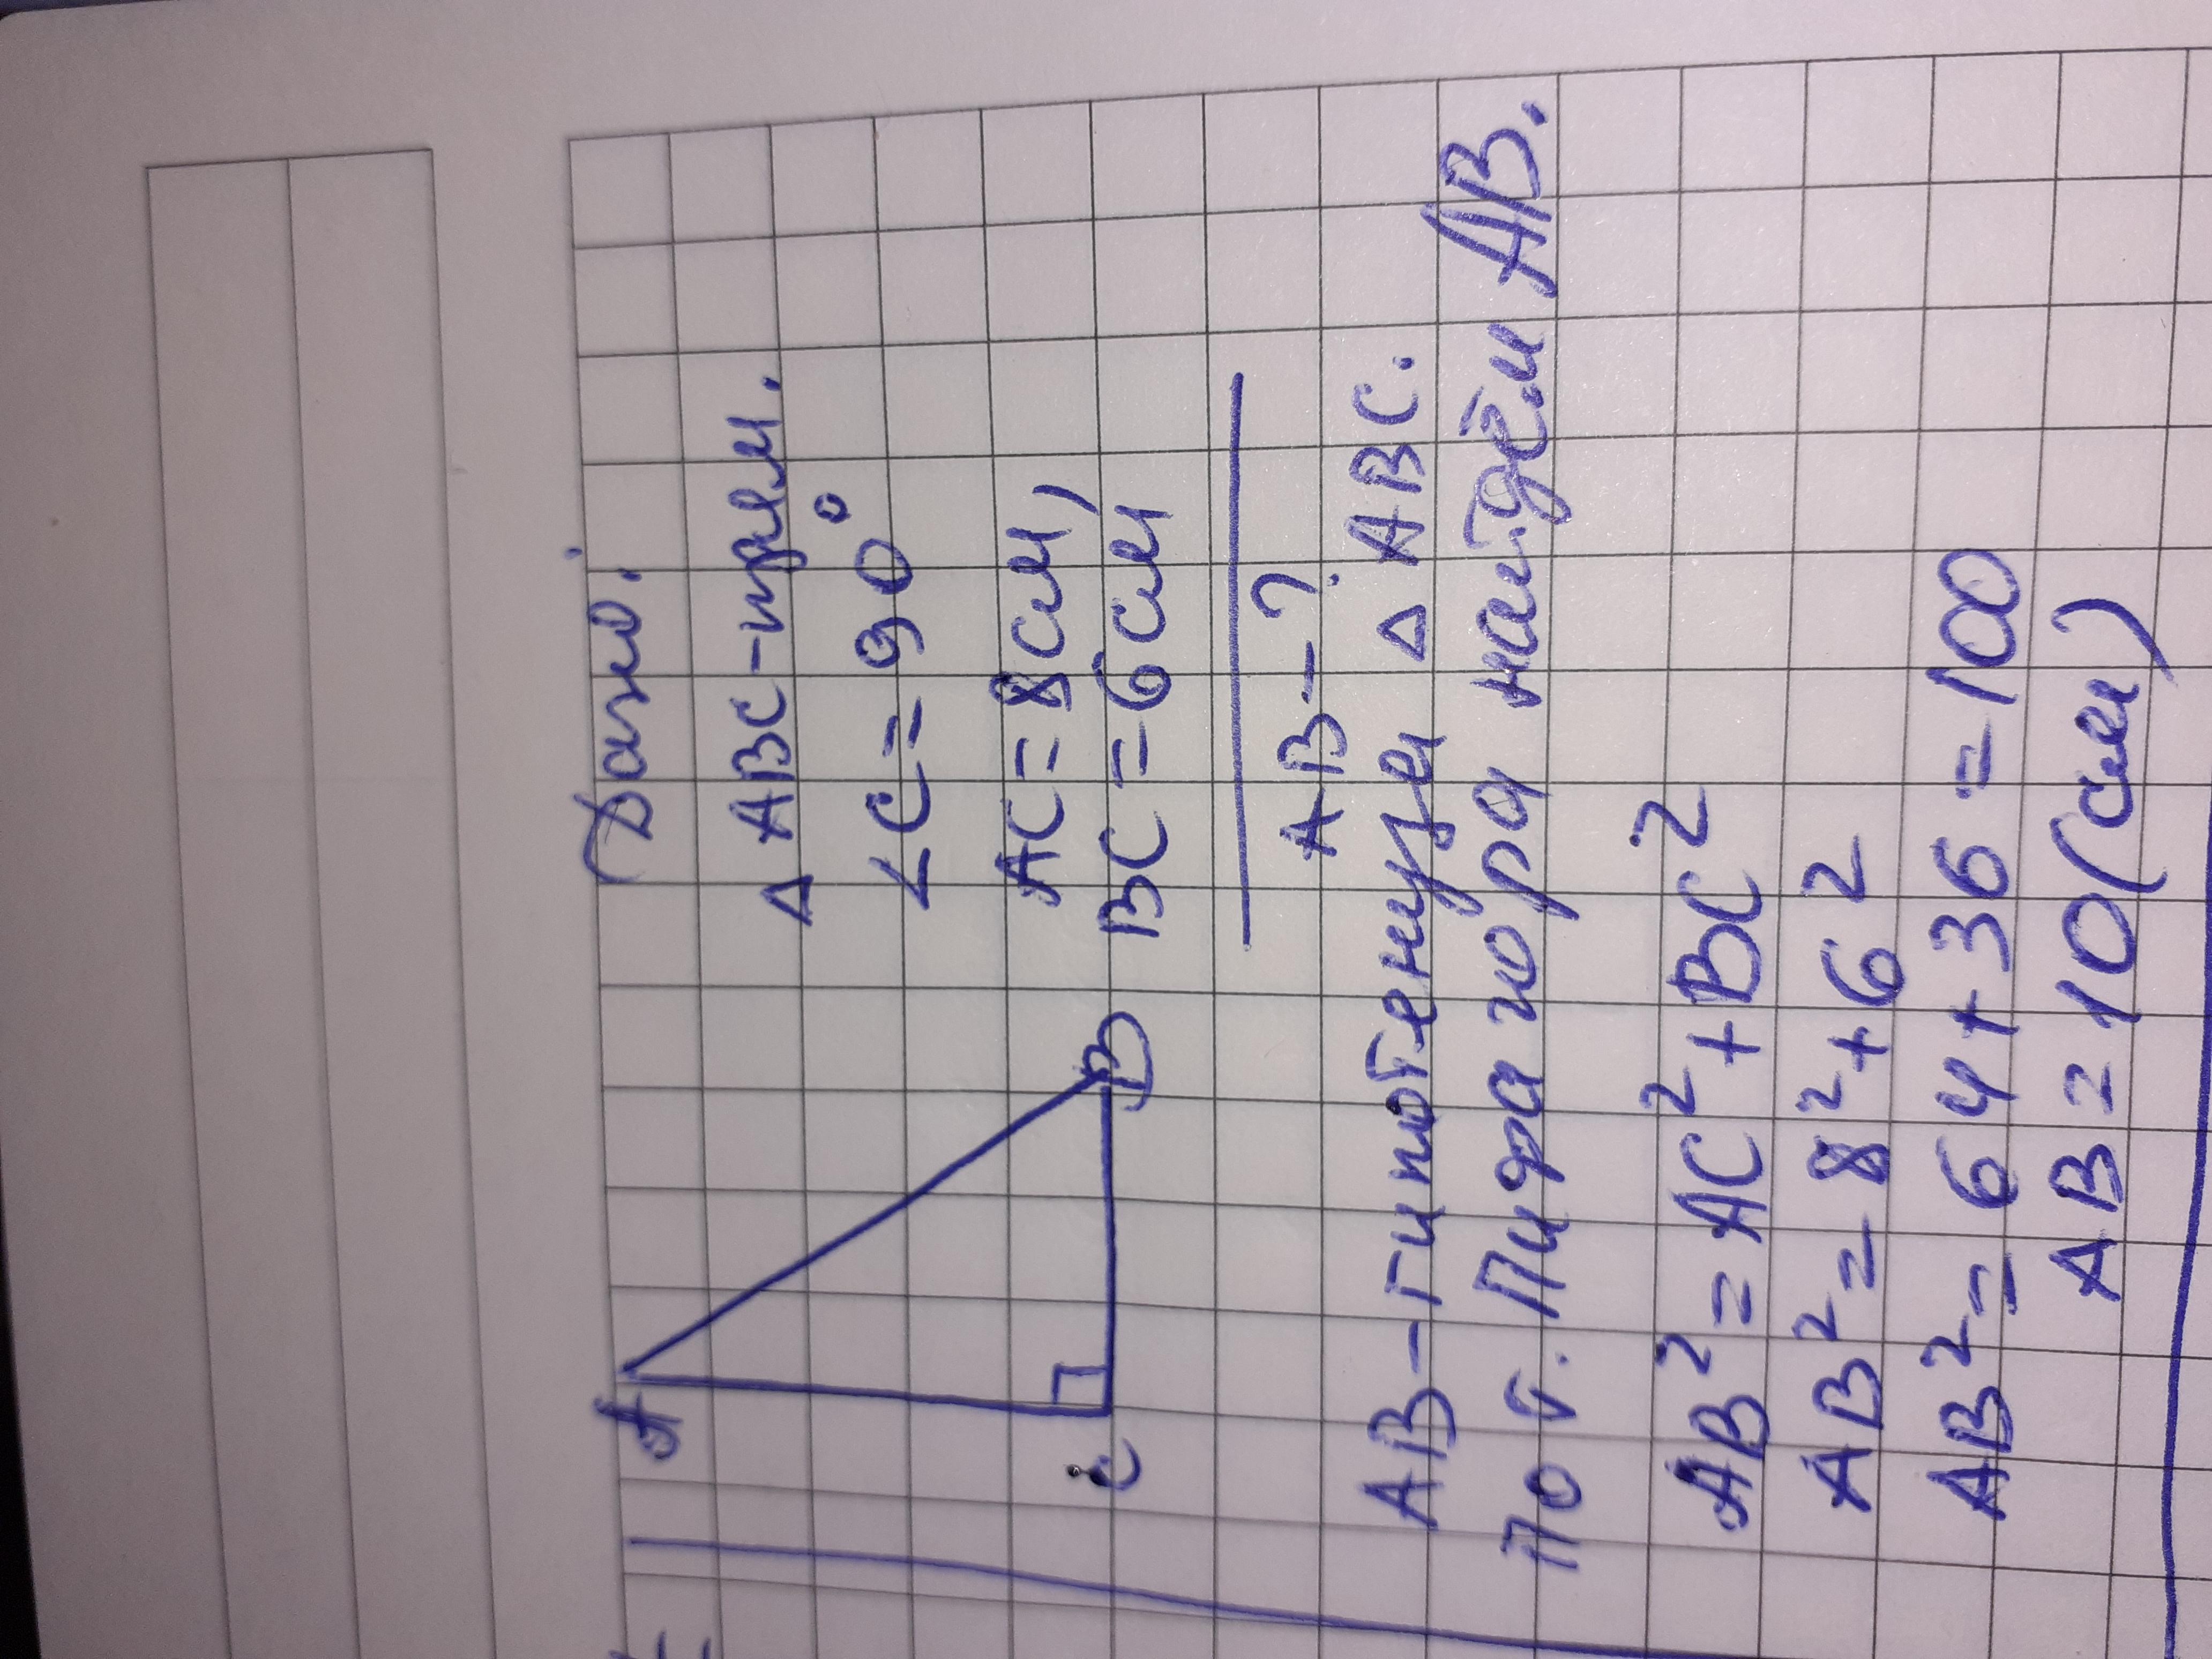 A
C
B
Дано:
△ ABC-прям.
∠C=90°
AC=8см,
BC=6см
AB-?
AB-гипотенузы △ ABC.
По т. Пифагора найдём AB.
AB²=AC²+BC²
AB²=8²+6²
AB²=64+36=100
AB=10(см)